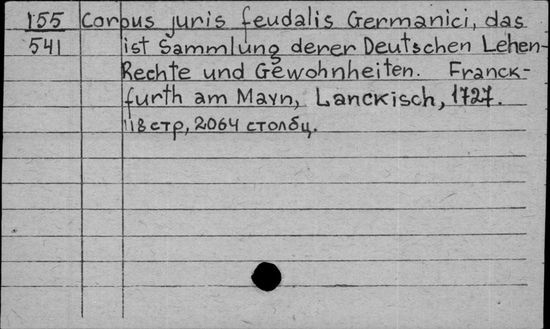 155 Corpus juris feudalis Germanici, das
541 ist Sammlung derer Deutschen Lehen-
Rechte und Gewohnheiten. Franck-
furth am Mayn, Lanckisch, 1727.
118 стр, 2064 столбц.